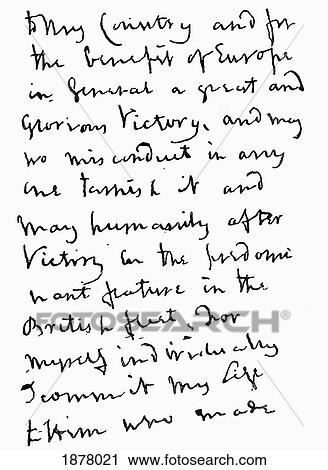 to my Country and for
the benefit of Europe
in General a great and
Glorious Victory, and may
no misconduct in any
one tarnish it and
may humanity after
Victory be the predomi
nant feature in the
British fleet, For
myself individually
I commit my life
to Him who made
FOTOSEARCH®
1878021 www.fotosearch.com